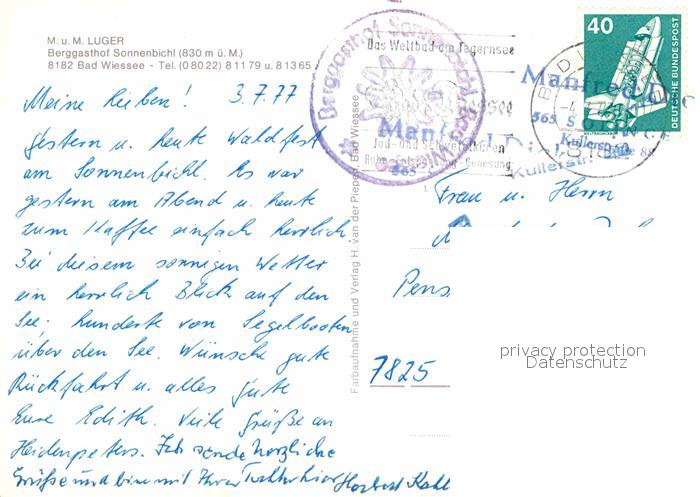 M. u. M. LUGER
Berggasthof Sonnenbichl (830 m ü. M.)
8182 Bad Wiessee - Tel. (0 80 22) 8 11 79 u. 8 13 65
Meine Lieben! 3.7.77
gestern u. heute Waldfest
am Sonnenbichl. Es war
gestern am Abend u. heute
zum Kaffee einfach herrlich
Bei diesem sonnigen Wetter
ein herrlich Blick auf den
See, hunderte von Segelbooten
über den See. Wünsche gute
Rückfahrt u. alles gute
Eure Edith. Viele Grüße an
Heidenpeters. Ich sende herzliche
Grüße und bin mit Ihrer Tochter hier
Farbaufnahme und Verlag H. van der Piepen, Bad Wiessee
Berggasthof Sonnenbichl Bad Wiessee
Das Weltbad am Tegernsee
Jod- und Schwefelthermen
Genesung
40
DEUTSCHE BUNDESPOST
Manfred
565 S
Kullerstr
Manf
565
Kullerstr
Frau u. Herrn
Pens
7825
privacy protection
Datenschutz